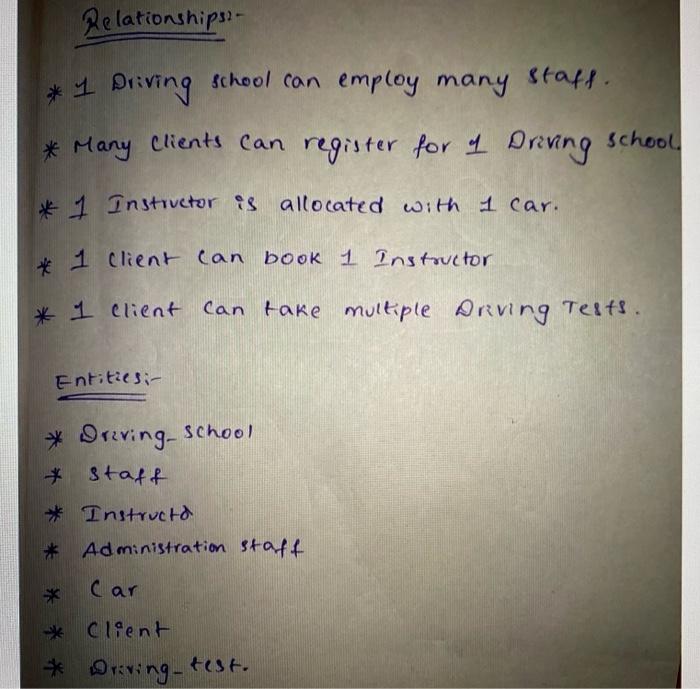 Relationships:-
* 1 Driving school can employ many staff.
* Many clients can register for 1 Driving school.
* 1 Instructor is allocated with 1 car.
* 1 client can book 1 Instructor
* 1 client can take multiple Driving Tests.
Entities:-
* Driving_school
* Staff
* Instructor
* Administration staff
* Car
* Client
* Driving_test.